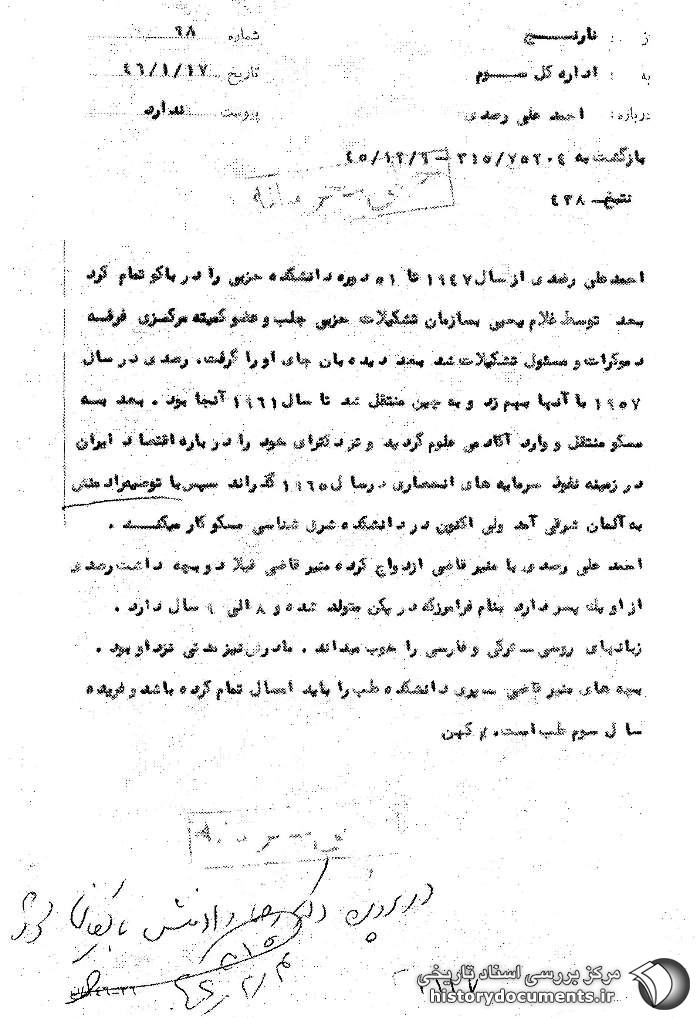 از : نارنج
شماره ۶۸
به : اداره کل سوم
تاریخ ۴۶/۱/۱۷
درباره: احمد علی رصدی
پیوست ندارد
بازگشت به ۳۱۵/۷۵۲۰۴ – ۴۵/۱۲/۶
خیلی محرمانه
احمدعلی رصدی از سال ۱۹۴۷ تا ۵۱ دوره دانشکده حزبی را در باکو تمام کرد
بعد توسط غلام یحیی بسازمان تشکیلات حزبی جلب و عضو کمیته مرکزی فرقه
دموکرات و مسئول تشکیلات شد بعد دیده بان جای او را گرفت. رصدی در سال
۱۹۵۷ با آنها بهم زد و به چین منتقل شد تا سال ۱۹۶۱ آنجا بود . بعد بسه
مسکو منتقل و وارد آکادمی علوم گردید و تز دکترای خود را در باره اقتصاد ایران
در زمینه نفوذ سرمایه های انحصاری در سال ۱۹۶۵ گذراند سپس با توصیه رادمنش
به آلمان شرقی آمد ولی اکنون در دانشکده شرق شناسی مسکو کار میکنــد .
احمد علی رصدی با منیر قاضی ازدواج کرده منیر قاضی قبلا دو بچه داشت رصدی
از او یك پسر دارد بنام فرامرز که در پکن متولد شده و ۸ الی ۹ سال دارد .
زبانهای روسی – ترکی و فارسی را خوب میداند . مادرش نیز مدتی نزد او بود .
بچه های منیر قاضی دانشکده طب را باید امسال تمام کرده باشد و فریده
سال سوم طب است. کهن
خیلی محرمانه
در پرونده دکتر رضا رادمنش بایگانی شود
۳۱۵
مرکز بررسی اسناد تاریخی
historydocuments.ir